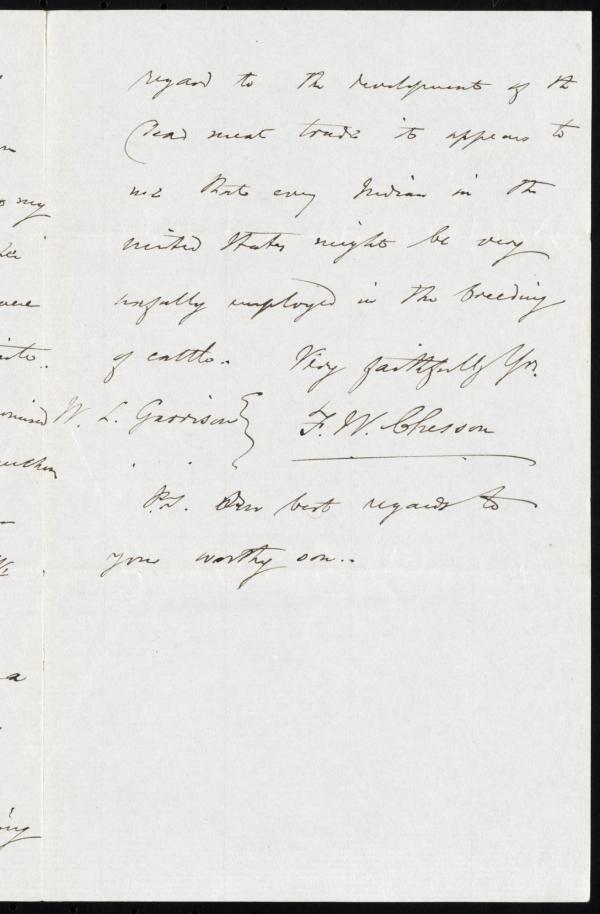 regard to the development of the
dead meat trade it appears to
me that every Indian in the
united States might be very
usefully employed in the breeding
of cattle. Very faithfully Yrs.
W. L. Garrison } F. W. Chesson
P.S. Our best regards to
your worthy son..